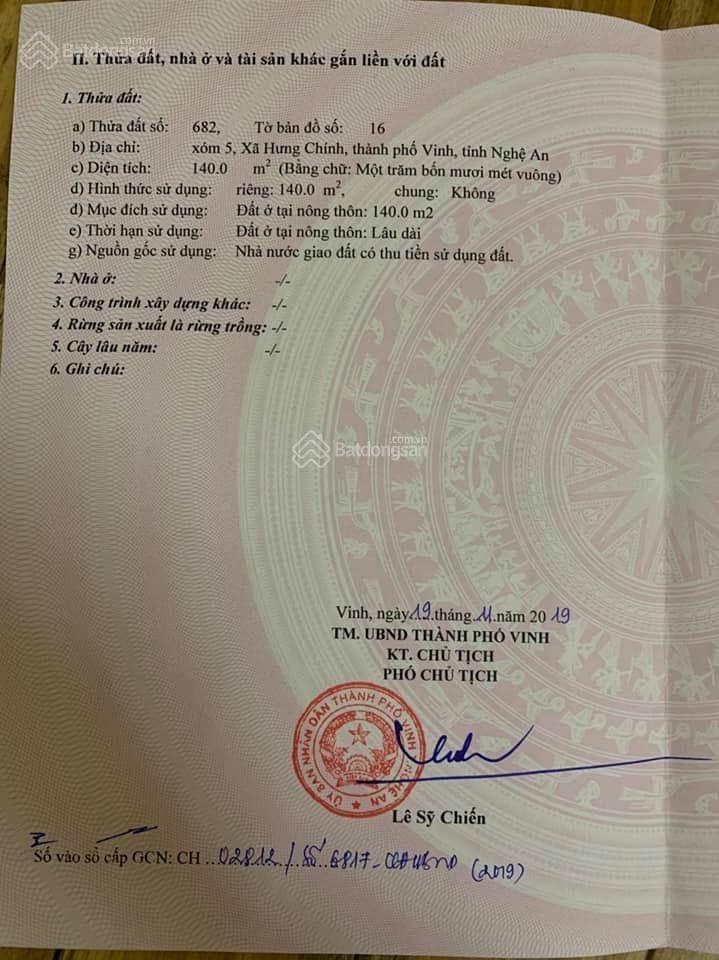 Batdongsan
.com.vn
II. Thửa đất, nhà ở và tài sản khác gắn liền với đất
1. Thửa đất:
a) Thửa đất số: 682, Tờ bản đồ số: 16
b) Địa chỉ: xóm 5, Xã Hưng Chính, thành phố Vinh, tỉnh Nghệ An
c) Diện tích: 140.0 m² (Bằng chữ: Một trăm bốn mươi mét vuông)
d) Hình thức sử dụng: riêng: 140.0 m², chung: Không
đ) Mục đích sử dụng: Đất ở tại nông thôn: 140.0 m2
e) Thời hạn sử dụng: Đất ở tại nông thôn: Lâu dài
g) Nguồn gốc sử dụng: Nhà nước giao đất có thu tiền sử dụng đất.
2. Nhà ở: -/-
3. Công trình xây dựng khác: -/-
4. Rừng sản xuất là rừng trồng: -/-
5. Cây lâu năm: -/-
6. Ghi chú:
Batdongsan
.com.vn
Vinh, ngày 19 tháng 11 năm 2019
TM. UBND THÀNH PHỐ VINH
KT. CHỦ TỊCH
PHÓ CHỦ TỊCH
ỦY BAN NHÂN DÂN THÀNH PHỐ VINH
NGHỆ AN
Lê Sỹ Chiến
Số vào sổ cấp GCN: CH ..02812 / Số 6817 - (2019)